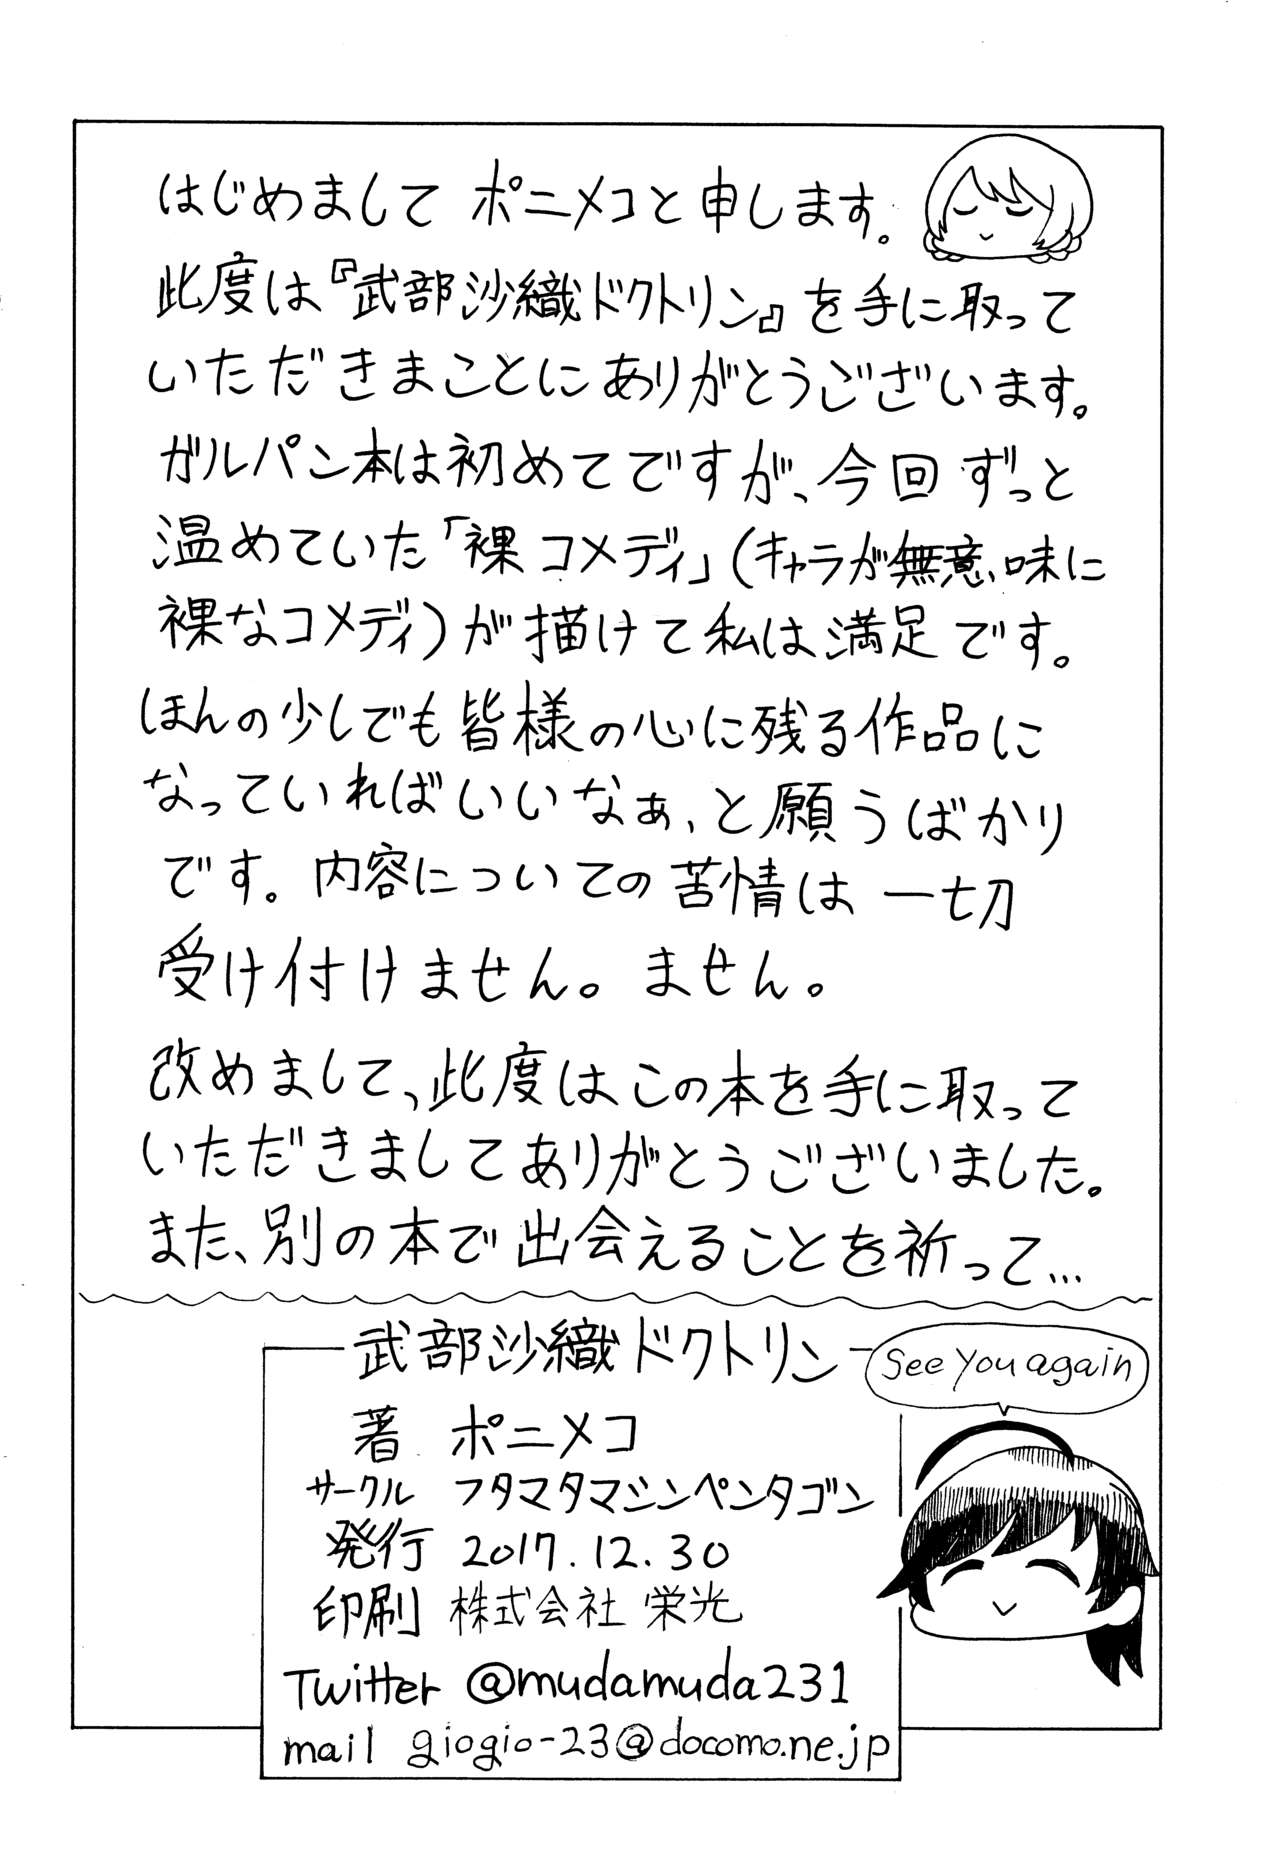 はじめまして ポニメコと申します。
此度は『武部沙織ドクトリン』を手に取って
いただきまことにありがとうございます。
ガルパン本は初めてですが、今回ずっと
温めていた「裸コメディ」(キャラが無意味に
裸なコメディ)が描けて私は満足です。
ほんの少しでも皆様の心に残る作品に
なっていればいいなぁ、と願うばかり
です。内容についての苦情は一切
受け付けません。ません。
改めまして、此度はこの本を手に取って
いただきましてありがとうございました。
また、別の本で出会えることを祈って…
See you again
武部沙織ドクトリン
著 ポニメコ
サークル フタマタマシンペンタゴン
発行 2017.12.30
印刷 株式会社 栄光
Twitter @mudamuda231
mail giogio-23@docomo.ne.jp